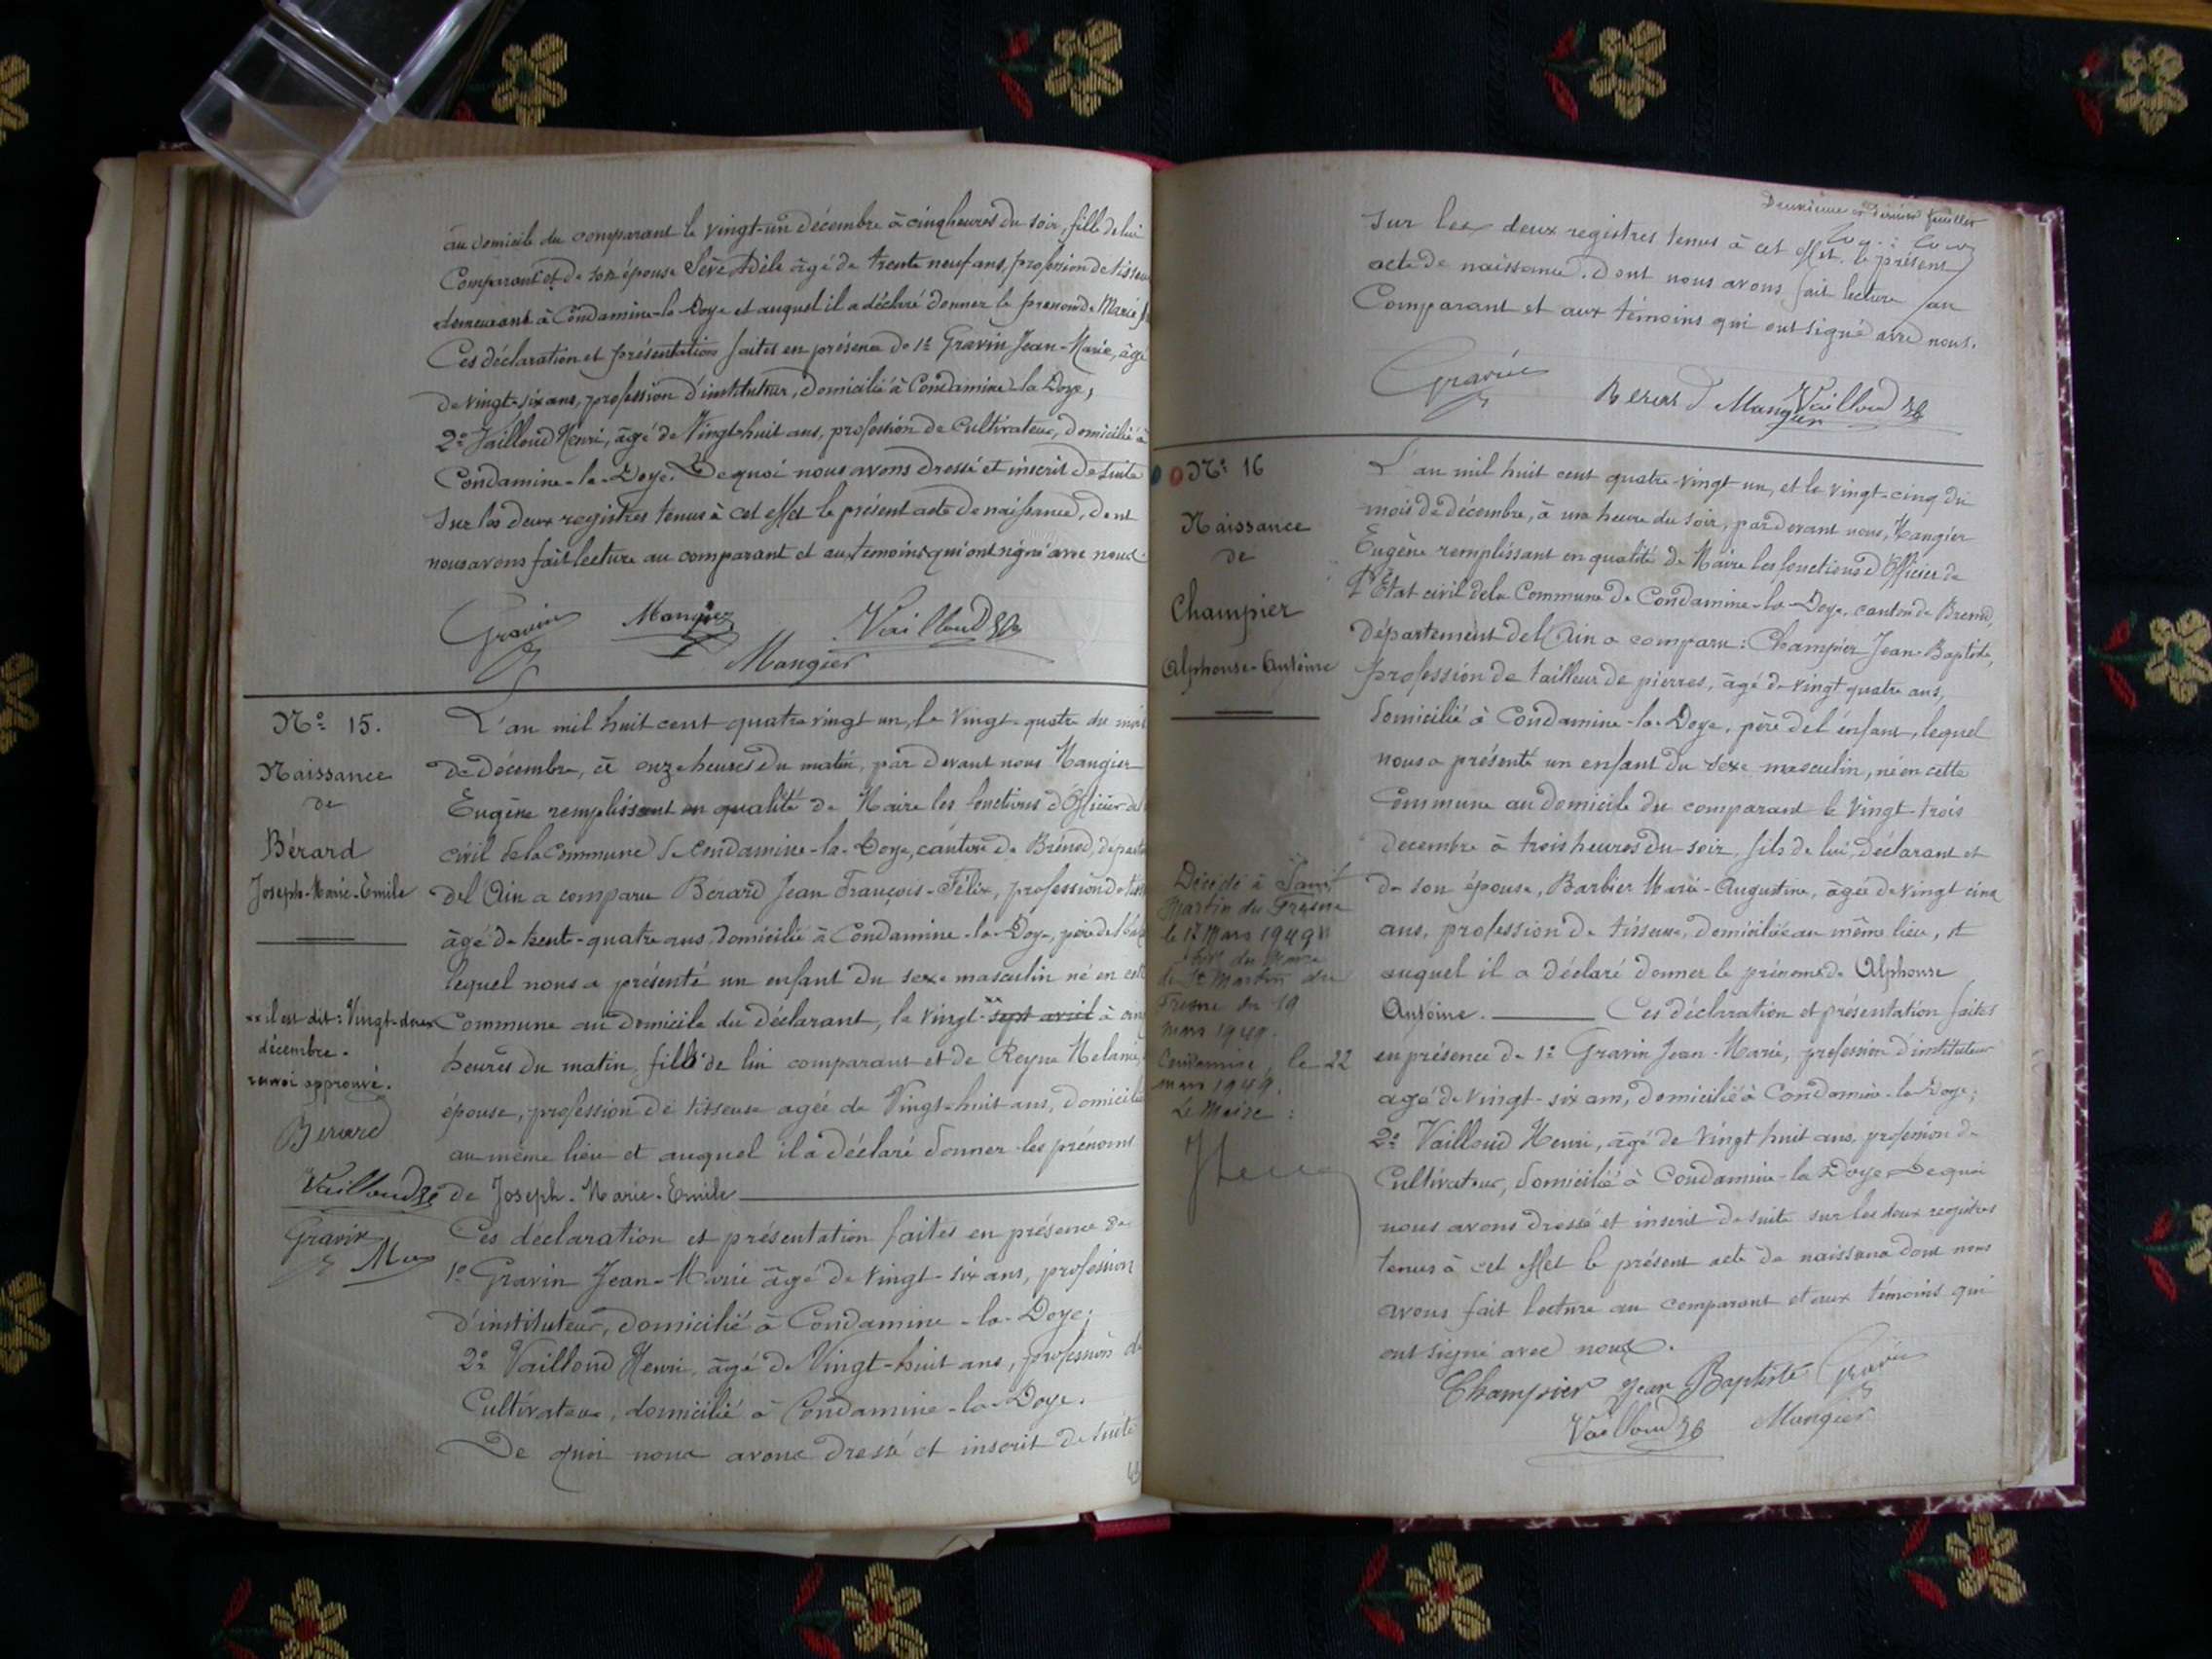 au domicile du comparant le vingt-un décembre à cinq heures du soir, fille de lui
Comparant et de son épouse Sève Adèle âgé de trente neuf ans, profession de tisseuse
demeurant à Condamine-la-Doye et auquel il a déclaré donner le prenom de Marie
Ces déclaration et présentation faites en présence de 1º Gravin Jean-Marie, âgé
de vingt-six ans, profession d'instituteur, domicilié à Condamine-la Doye,
2º Vailloud Henri, âgé de Vingt-huit ans, profession de Cultivateur, domicilié à
Condamine-la-Doye. De quoi nous avons dressé et inscrit de suite
sur les deux registres tenus à cet effet le présent acte de naissance, dont
nous avons fait lecture au comparant et aux témoins qui ont signé avec nous.
Gravin Mangier Vailloud
Mangier
Nº 15.
Naissance
de
Bérard
Joseph-Marie-Emile
xx il est dit: Vingt-deux
décembre.
renvoi approuvé.
Berard
Vailloud
Gravin
L'an mil huit cent quatre vingt un, le vingt-quatre du mois
de décembre, à onze heures du matin, par devant nous Mangier
Eugène remplissant en qualité de Maire les fonctions d'Officier de
civil de la Commune de Condamine-la-Doye, canton de Brénod, départ
de l'Ain a comparu Bérard Jean François-Félix, profession de
âgé de trente-quatre ans domicilié à Condamine-la-Doye, père de
lequel nous a présenté un enfant du sexe masculin né en cette
Commune au domicile du déclarant, le vingt-xx sept avril à cinq
heures du matin, fils de lui comparant et de Reyne Melanie,
épouse, profession de tisseuse agée de Vingt-huit ans, domiciliée
au même lieu et auquel il a déclaré donner les prénoms
de Joseph-Marie-Emile
Ces déclaration et présentation faites en présence de
1º Gravin Jean-Marie âgé de vingt-six ans, profession
d'instituteur, domicilié à Condamine-la-Doye;
2º Vailloud Henri, âgé de Vingt-huit ans, profession de
Cultivateur, domicilié à Condamine-la-Doye.
De quoi nous avons dressé et inscrit de suite
Deuxième et dernier feuillet
sur les deux registres tenus à cet effet le présent
acte de naissance. Dont nous avons fait lecture au
Comparant et aux témoins qui ont signé avec nous.
Gravin Berard Mangier Vailloud
Nº 16
Naissance
de
Champier
Alphonse-Antoine
Décédé à Saint
Martin du Fresne
le 17 Mars 1949
du Maire
de St Martin du
Fresne du 19
mars 1949.
Condamine, le 22
mars 1949.
Le Maire:
L'an mil huit cent quatre-vingt un, et le vingt-cinq du
mois de décembre, à une heure du soir, par devant nous, Mangier
Eugène remplissant en qualité de Maire les fonctions d'Officier de
l'Etat civil de la Commune de Condamine-la-Doye, canton de Brenod,
Département de l'Ain a comparu: Champier Jean-Baptiste,
profession de tailleur de pierres, âgé de vingt quatre ans,
domicilié à Condamine-la-Doye, père de l'enfant, lequel
nous a présenté un enfant du sexe masculin, né en cette
Commune au domicile du comparant le vingt-trois
decembre à trois heures du soir, fils de lui, déclarant et
de son épouse, Barbier Marie-Augustine, âgée de vingt cinq
ans, profession de tisseuse, domiciliée au même lieu, et
auquel il a déclaré donner le prénom de Alphonse
Antoine. Ces déclaration et présentation faites
en présence de 1º Gravin Jean-Marie, profession d'instituteur
agé de vingt-six ans, domicilié à Condamine-la-Doye;
2º Vailloud Henri, âgé de vingt huit ans, profession de
Cultivateur, domicilié à Condamine-la Doye. De quoi
nous avons dressé et inscrit de suite sur les deux registres
tenus à cet effet le présent acte de naissance dont nous
avons fait lecture au comparant et aux témoins qui
ont signé avec nous.
Champier Jean Baptiste Gravin
Vailloud Mangier